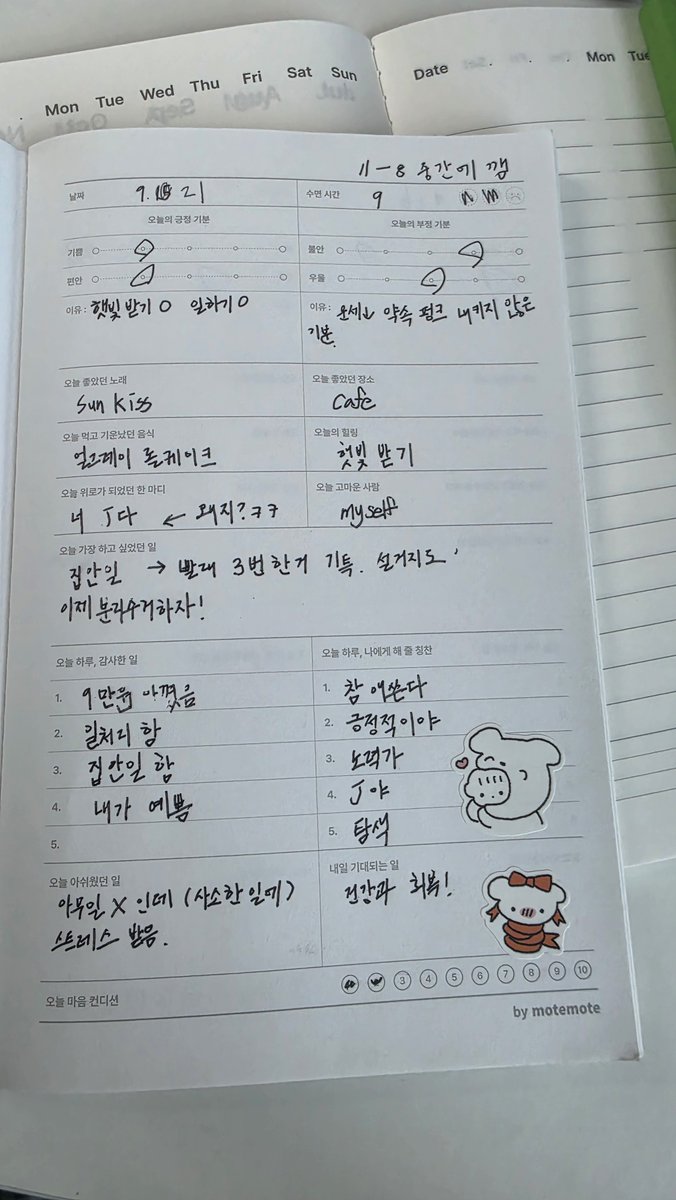 Mon Tue Wed Thu Fri Sat Sun
Date . . . Mon Tue
11-8 중간에 깸
날짜 9. 21
수면 시간 9
오늘의 긍정 기분
오늘의 부정 기분
기쁨
불안
편안
우울
이유 : 햇빛 받기 O 일하기 O
이유 : 운세↓ 약속 펑크 내키지 않은
기분.
오늘 좋았던 노래
오늘 좋았던 장소
Sun Kiss
Cafe
오늘 먹고 기운났던 음식
오늘의 힐링
얼그레이 롤케이크
햇빛 받기
오늘 위로가 되었던 한 마디
오늘 고마운 사람
너 J다 ← 왜지?ㅋㅋ
myself
오늘 가장 하고 싶었던 일
집안일 → 빨래 3번한거 기특. 설거지도
이제 분리수거하자!
오늘 하루, 감사한 일
오늘 하루, 나에게 해 줄 칭찬
1. 9만원 아꼈음
1. 참 애쓴다
2. 일처리 함
2. 긍정적이야
3. 집안일 함
3. 노력가
4. 내가 예쁨
4. J야
5.
5. 탐색
오늘 아쉬웠던 일
내일 기대되는 일
아무일 X 인데 (사소한 일에)
스트레스 받음.
건강과 회복!
오늘 마음 컨디션
3 4 5 6 7 8 9 10
by motemote